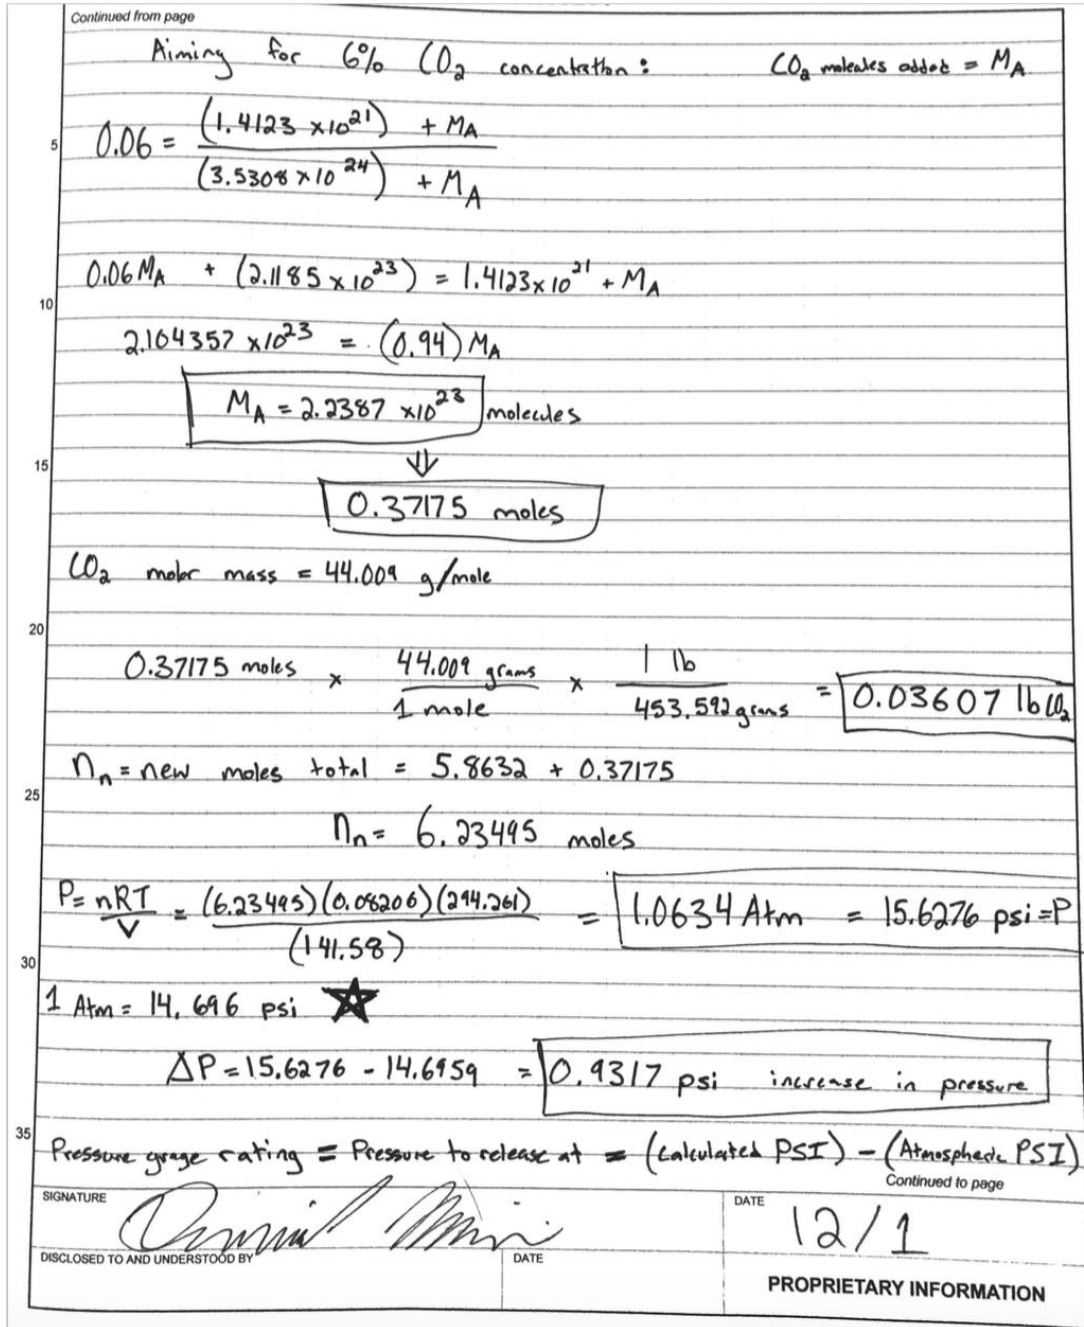 Continued from page
Aiming for 6% CO₂ concentration : CO₂ molecules added = M_A
5
0.06 = ((1.4123 ×10²¹) + M_A) / ((3.5308 × 10²⁴) + M_A)
0.06 M_A + (2.1185 × 10²³) = 1.4123 × 10²¹ + M_A
10
2.104357 ×10²³ = (0.94) M_A
M_A = 2.2387 ×10²³ molecules
15
⇓
0.37175 moles
CO₂ molar mass = 44.009 g/mole
20
0.37175 moles × 44.009 grams / 1 mole × 1 lb / 453.592 grams = 0.03607 lb CO₂
n_n = new moles total = 5.8632 + 0.37175
25
n_n = 6.23495 moles
P = nRT / V = (6.23495)(0.08206)(294.261) / (141.58) = 1.0634 Atm = 15.6276 psi = P
30
1 Atm = 14.696 psi ☆
ΔP = 15.6276 - 14.6959 = 0.9317 psi increase in pressure
35
Pressure grage rating = Pressure to release at = (Calculated PSI) - (Atmospheric PSI)
Continued to page
SIGNATURE DATE
12/1
DISCLOSED TO AND UNDERSTOOD BY DATE
PROPRIETARY INFORMATION